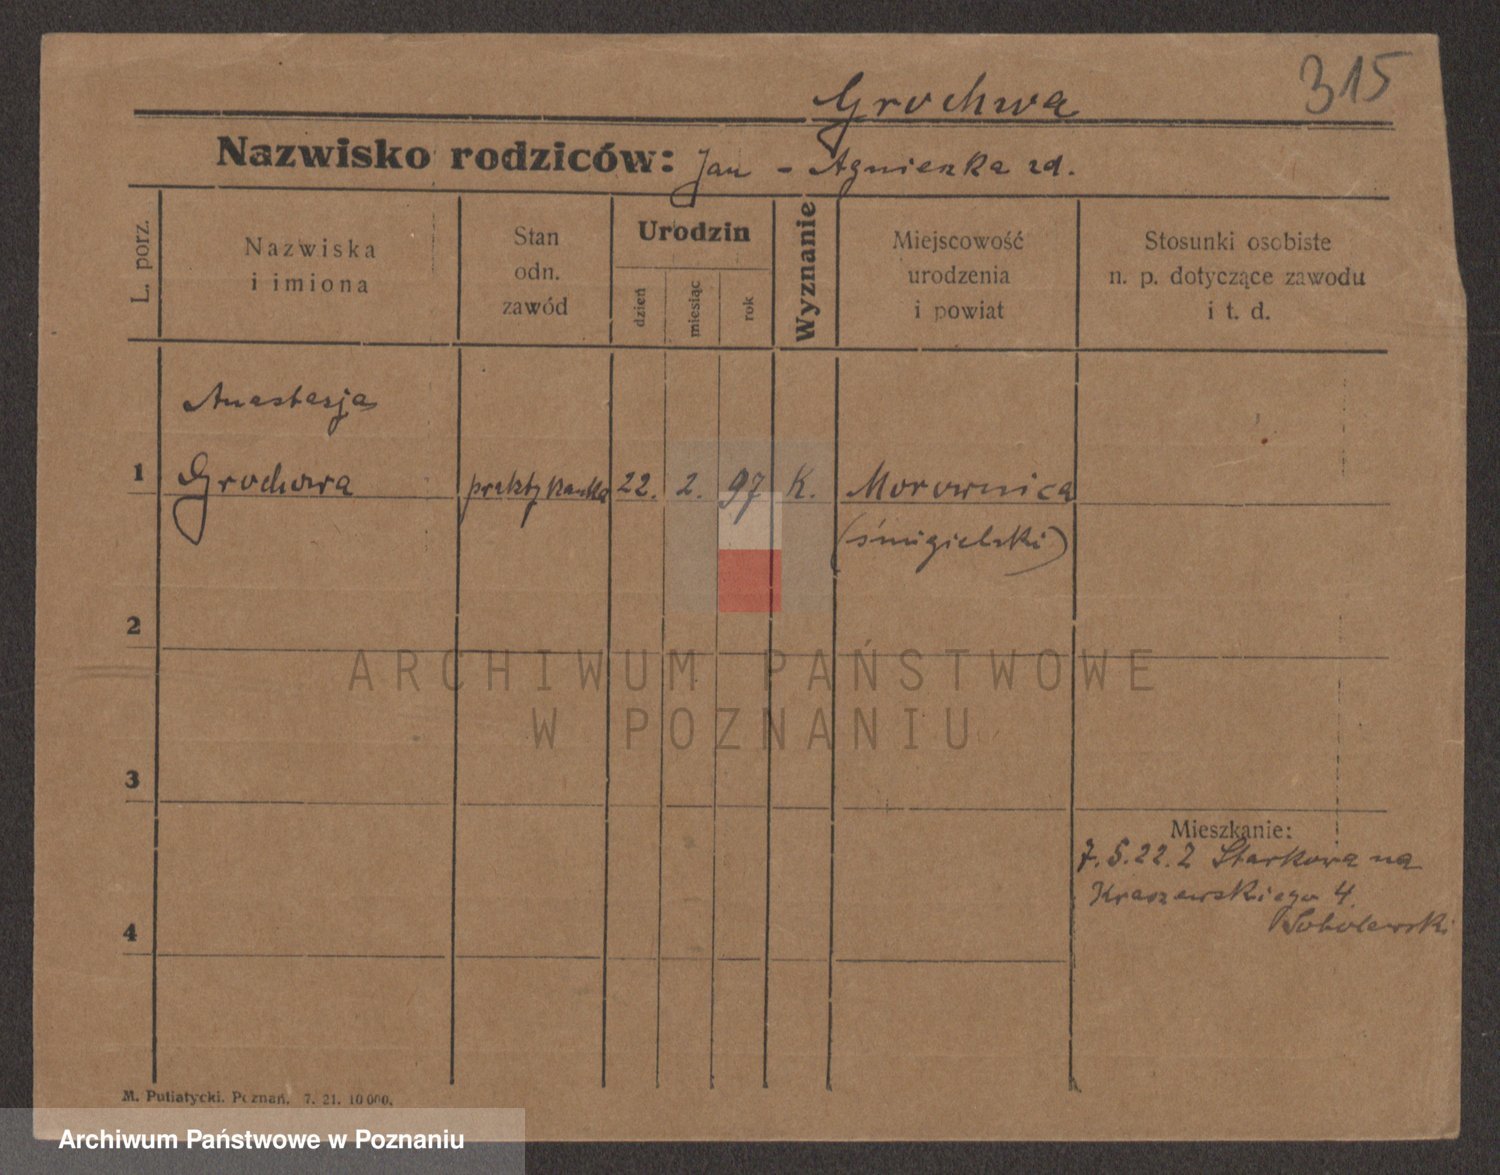 315
Grochwa
Nazwisko rodziców: Jan - Agnieszka zd.
L. porz.
Nazwiska
i imiona
Stan
odn.
zawód
Urodzin
dzień
miesiąc
rok
Wyznanie
Miejscowość
urodzenia
i powiat
Stosunki osobiste
n. p. dotyczące zawodu
i t. d.
Anastazja
1 Grochowa praktykantka 22. 2. 97 K. Morownica
(śmigielski)
2
ARCHIWUM PAŃSTWOWE
W POZNANIU
3
Mieszkanie:
7.5.22. Z Starkowa na
Kraszewskiego 4.
Sobolewski
4
M. Putiatycki. Poznań. 7. 21. 10000.
Archiwum Państwowe w Poznaniu